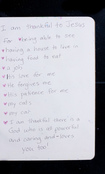 I am thankful to Jesus
for •being able to see
•having a house to live in
•having food to eat
•a job
•His love for me
•He forgives me
•His patience for me
•my cats
•my car
• I am thankful there is a
God who is all powerful
and caring and loves
you too!